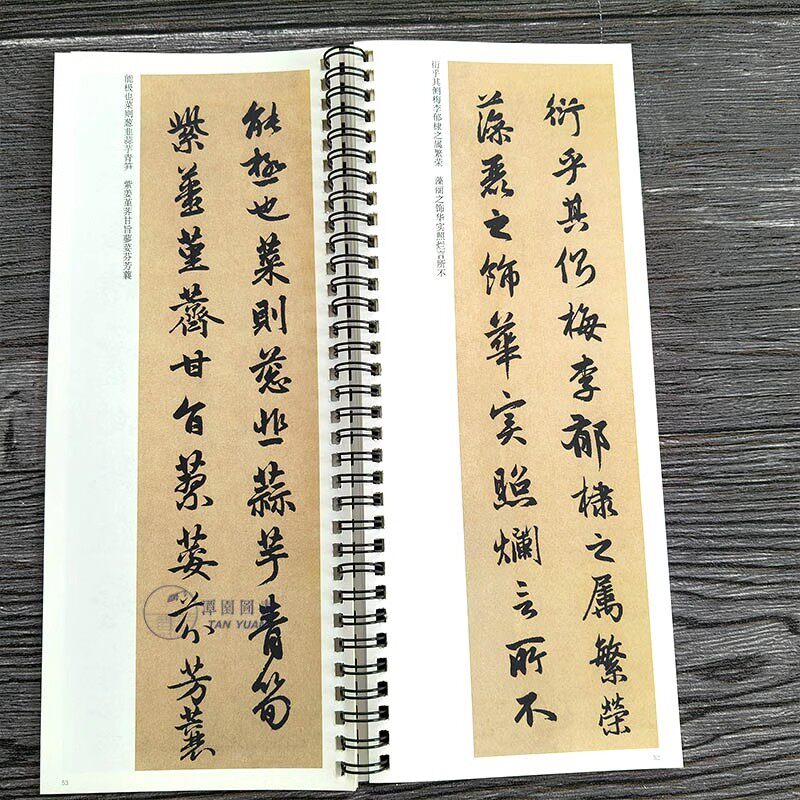 衍乎其側梅李郁棣之属繁榮
藻麗之飾華实照爛言所不
衍乎其侧梅李郁棣之属繁荣 藻丽之饰华实照烂言所不
52
能極也菜則葱韭蒜芋青筍
紫薑堇薺甘旨蓼荽芬芳蘘
能极也菜则葱韭蒜芋青笋 紫姜堇荠甘旨蓼荽芬芳蘘
53
潭園圖
TAN YUAN